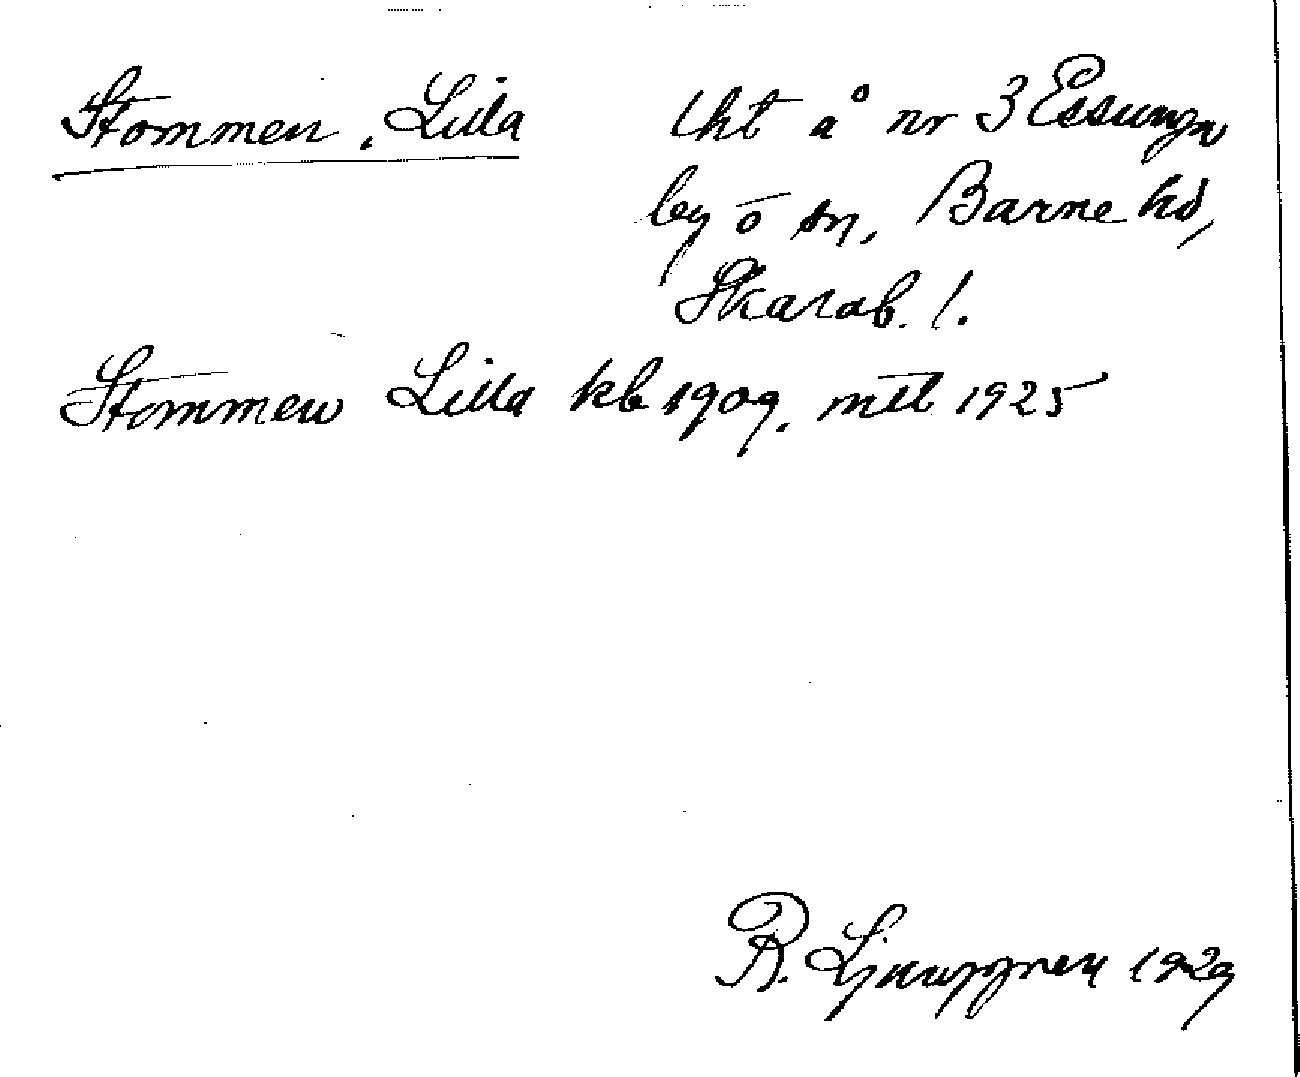 Stommen, Lilla
lht å nr 3 Essunga
by o sn, Barne hd,
Skarab. l.
Stommen Lilla kb 1909. mtl 1925
R. Ljunggren 1929